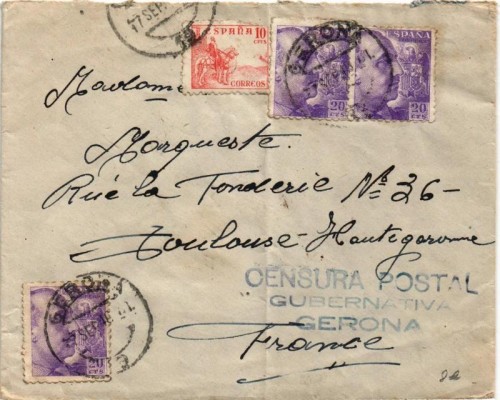 17 SEP.
ESPAÑA 10
CTS
CORREOS
ESPAÑA
20 CTS
20 CTS
GERONA
Madame
Marqueste
Rue la Fonderie Nº 26-
Toulouse-Hautegaronne
CENSURA POSTAL
GUBERNATIVA
GERONA
France
GERONA
SEP
20 CTS